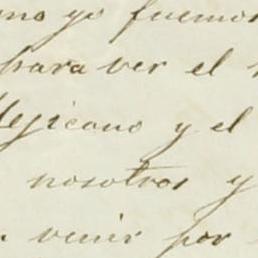 mo yo fuemos
para ver el
Mejicano y el
nosotros y
venir por